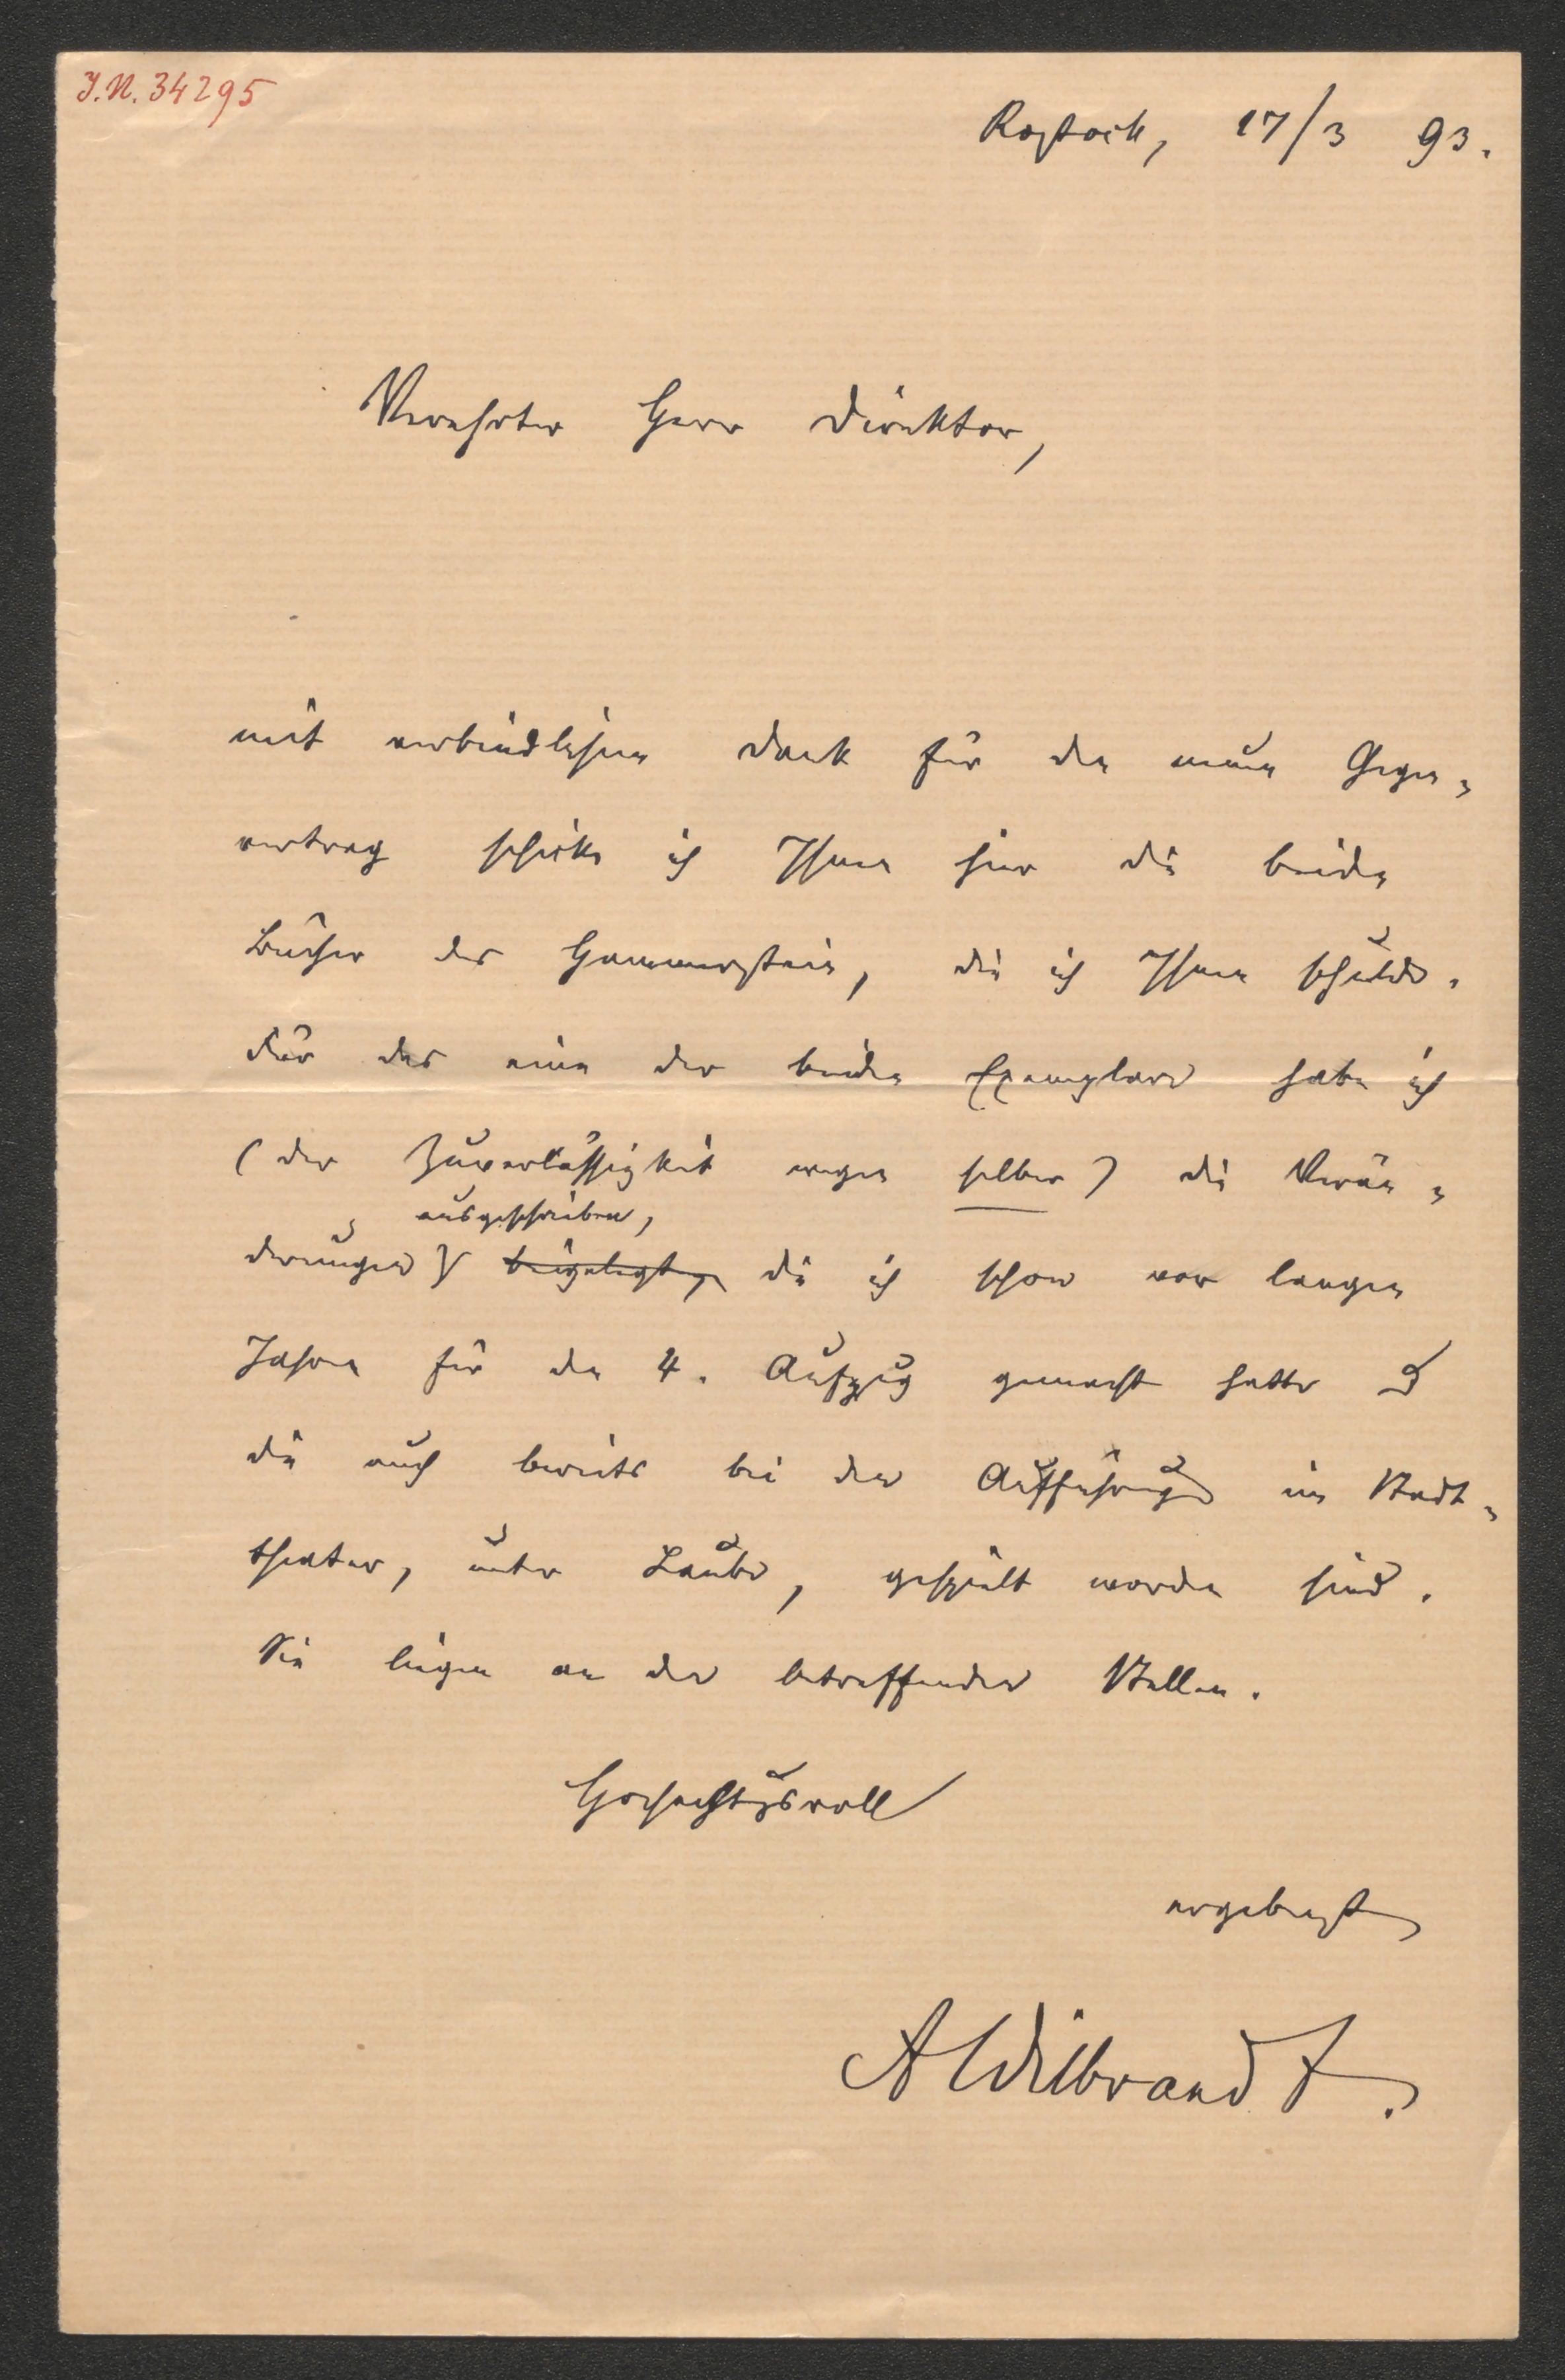 J.N. 34295
Rostock, 17/3 93.
Verehrter Herr Direktor,
mit verbindlichem Dank für den neuen Gegen-
vertrag schicke ich Ihnen hier die beiden
Bücher des Hammerstein, die ich Ihnen schulde.
Für das eine der beiden Exemplare habe ich
(der Zuverlässigkeit wegen selber) die Verän-
ausgeschrieben,
derungen beigelegt, die ich schon vor langen
Jahren für den 4. Aufzug gemacht hatte &
die auch bereits bei den Aufführungen im Stadt-
theater, unter Laube, gespielt worden sind.
Sie liegen an den betreffenden Stellen.
Hochachtungsvoll
ergebenst
A Wilbrandt.